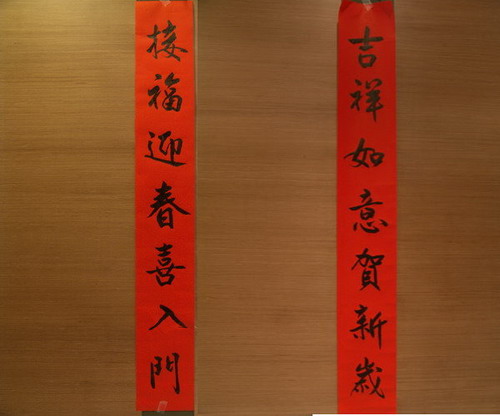 吉祥如意賀新歲
接福迎春喜入門